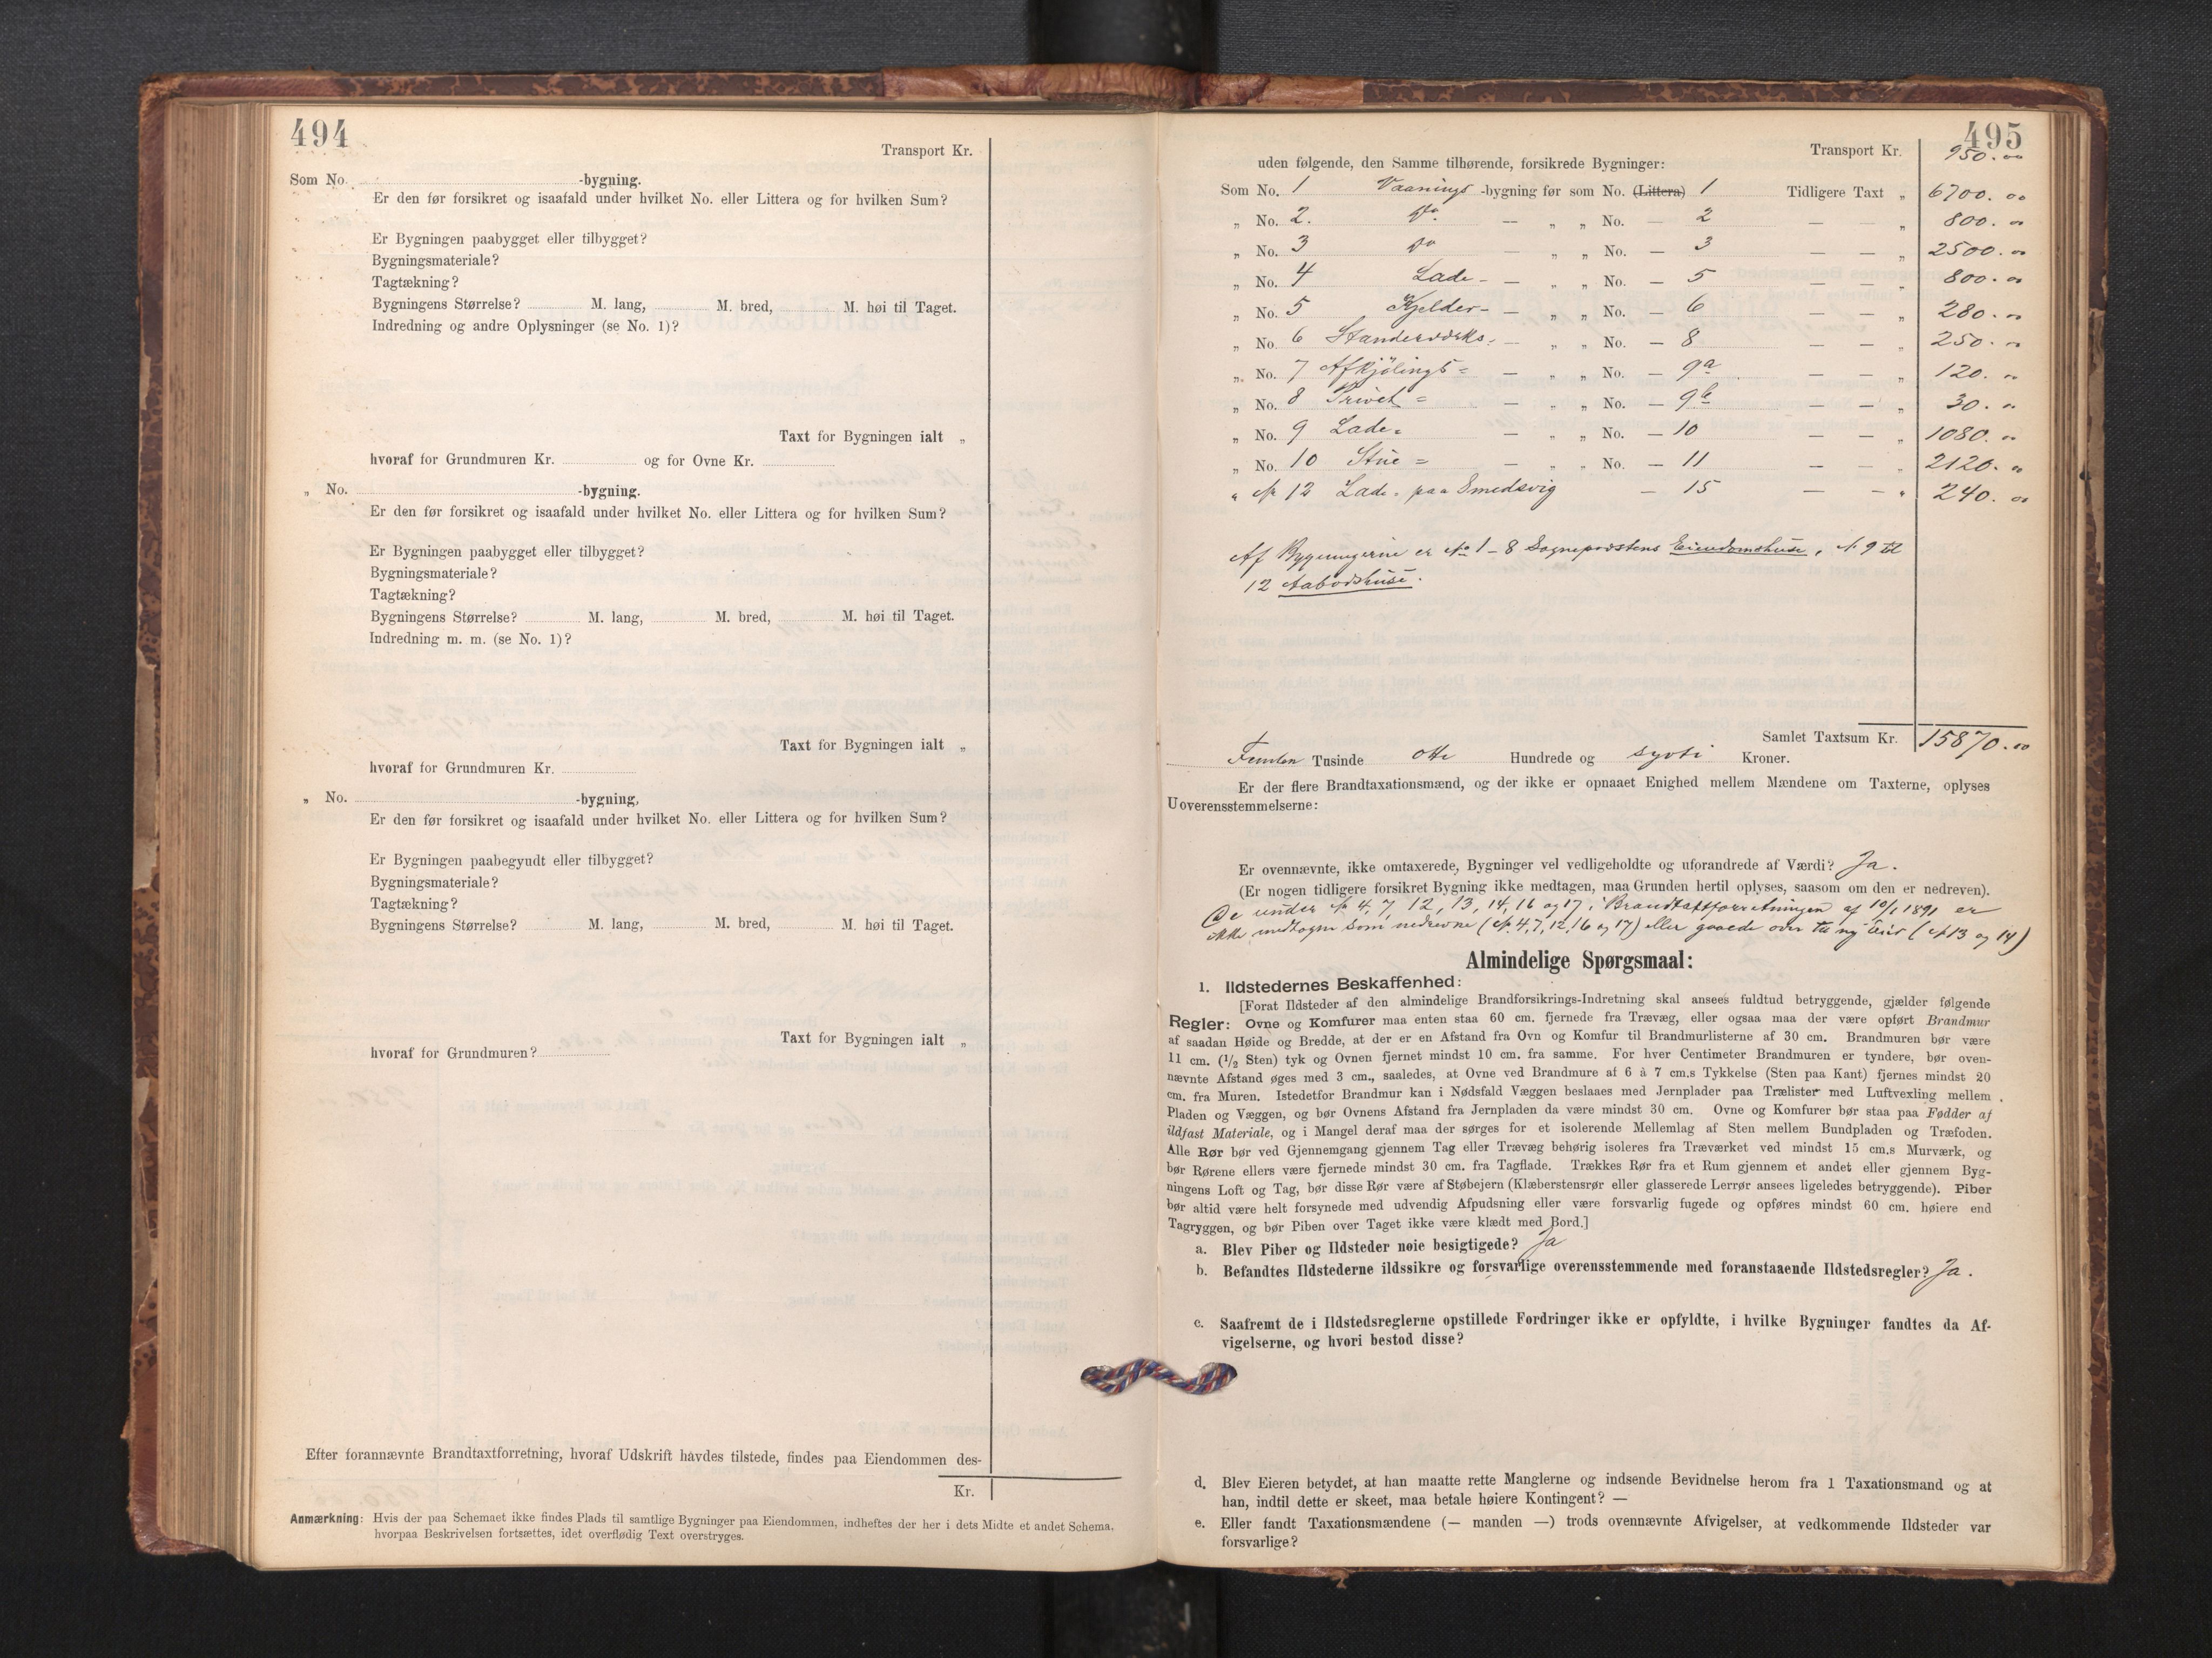 494
Transport Kr.
Som No. -bygning.
Er den før forsikret og isaafald under hvilket No. eller Littera og for hvilken Sum?
Er Bygningen paabygget eller tilbygget?
Bygningsmateriale?
Tagtækning?
Bygningens Størrelse? M. lang, M. bred, M. høi til Taget.
Indredning og andre Oplysninger (se No. 1)?
Taxt for Bygningen ialt „
hvoraf for Grundmuren Kr. og for Ovne Kr.
„ No. -bygning.
Er den før forsikret og isaafald under hvilket No. eller Littera og for hvilken Sum?
Er Bygningen paabygget eller tilbygget?
Bygningsmateriale?
Tagtækning?
Bygningens Størrelse? M. lang, M. bred, M. høi til Taget.
Indredning m. m. (se No. 1)?
Taxt for Bygningen ialt „
hvoraf for Grundmuren Kr.
„ No. -bygning,
Er den før forsikret og isaafald under hvilket No. eller Littera og for hvilken Sum?
Er Bygningen paabegyndt eller tilbygget?
Bygningsmateriale?
Tagtækning?
Bygningens Størrelse? M. lang, M. bred, M. høi til Taget.
Taxt for Bygningen ialt „
hvoraf for Grundmuren?
Efter forannævnte Brandtaxtforretning, hvoraf Udskrift havdes tilstede, findes paa Eiendommen des-
Kr.
Anmærkning: Hvis der paa Schemaet ikke findes Plads til samtlige Bygninger paa Eiendommen, indheftes der her i dets Midte et andet Schema,
hvorpaa Beskrivelsen fortsættes, idet overflødig Text overstryges.
495
Transport Kr. 950.00
uden følgende, den Samme tilhørende, forsikrede Bygninger:
Som No. 1 Vaanings -bygning før som No. (Littera) 1 Tidligere Taxt „ 6700.00
„ No. 2. Do — „ „ No. — 2 — — „ 800.00
„ No. 3 Do — „ „ No. — 3 — — „ 2500.00
„ No. 4 Lade- — „ „ No. — 5 — — „ 800.00
„ No. 5 Kjelder- — „ „ No. — 6 — — „ 280.00
„ No. 6 — „ „ No. — 8 — — „ 250.00
„ No. 7 Afkjølings= — „ „ No. — 9a — — „ 120.00
„ No. 8 Privet= — „ „ No. — 9b — — „ 30.00
„ No. 9 Lade= — „ „ No. — 10 — — „ 1080.00
„ No. 10 Stue= — „ „ No. — 11 — — „ 2120.00
„ No 12 Lade- paa Smedsvig — 15 — — „ 240.00
Af Bygningerne er No 1-8 Sogneprestens Eiendomshuse, No 9 til
12 Aabodshuse.
Samlet Taxtsum Kr. 15870.00
Femten Tusinde otte Hundrede og sytti Kroner.
Er der flere Brandtaxationsmænd, og der ikke er opnaaet Enighed mellem Mændene om Taxterne, oplyses
Uoverensstemmelserne:
Er ovennævnte, ikke omtaxerede, Bygninger vel vedligeholdte og uforandrede af Værdi? Ja.
(Er nogen tidligere forsikret Bygning ikke medtagen, maa Grunden hertil oplyses, saasom om den er nedreven).
De under No 4, 7, 12, 13, 14, 16 og 17 i Brandtaxtforretningen af 10/1 1891 er
ikke medtagne som nedrevne (No. 4, 7, 12, 16 og 17) eller gaaede over til ny Eier (No 13 og 14)
Almindelige Spørgsmaal:
1. Ildstedernes Beskaffenhed:
[Forat Ildsteder af den almindelige Brandforsikrings-Indretning skal ansees fuldtud betryggende, gjælder følgende
Regler: Ovne og Komfurer maa enten staa 60 cm. fjernede fra Trævæg, eller ogsaa maa der være opført Brandmur
af saadan Høide og Bredde, at der er en Afstand fra Ovn og Komfur til Brandmurlisterne af 30 cm. Brandmuren bør være
11 cm. (1/2 Sten) tyk og Ovnen fjernet mindst 10 cm. fra samme. For hver Centimeter Brandmuren er tyndere, bør oven-
nævnte Afstand øges med 3 cm., saaledes, at Ovne ved Brandmure af 6 à 7 cm.s Tykkelse (Sten paa Kant) fjernes mindst 20
cm. fra Muren. Istedetfor Brandmur kan i Nødsfald Væggen beslaaes med Jernplader paa Trælister med Luftvexling mellem
Pladen og Væggen, og bør Ovnens Afstand fra Jernpladen da være mindst 30 cm. Ovne og Komfurer bør staa paa Fødder af
ildfast Materiale, og i Mangel deraf maa der sørges for et isolerende Mellemlag af Sten mellem Bundpladen og Træfoden.
Alle Rør bør ved Gjennemgang gjennem Tag eller Trævæg behørig isoleres fra Træværket ved mindst 15 cm.s Murværk, og
bør Rørene ellers være fjernede mindst 30 cm. fra Tagflade. Trækkes Rør fra et Rum gjennem et andet eller gjennem Byg-
ningens Loft og Tag, bør disse Rør være af Støbejern (Klæberstensrør eller glasserede Lerrør ansees ligeledes betryggende). Piber
bør altid være helt forsynede med udvendig Afpudsning eller være forsvarlig fugede og opføres mindst 60 cm. høiere end
Tagryggen, og bør Piben over Taget ikke være klædt med Bord.]
a. Blev Piber og Ildsteder nøie besigtigede? Ja
b. Befandtes Ildstederne ildssikre og forsvarlige overensstemmende med foranstaaende Ildstedsregler? Ja.
c. Saafremt de i Ildstedsreglerne opstillede Fordringer ikke er opfyldte, i hvilke Bygninger fandtes da Af-
vigelserne, og hvori bestod disse?
d. Blev Eieren betydet, at han maatte rette Manglerne og indsende Bevidnelse herom fra 1 Taxationsmand og at
han, indtil dette er skeet, maa betale høiere Kontingent? —
e. Eller fandt Taxationsmændene (— manden —) trods ovennævnte Afvigelser, at vedkommende Ildsteder var
forsvarlige?